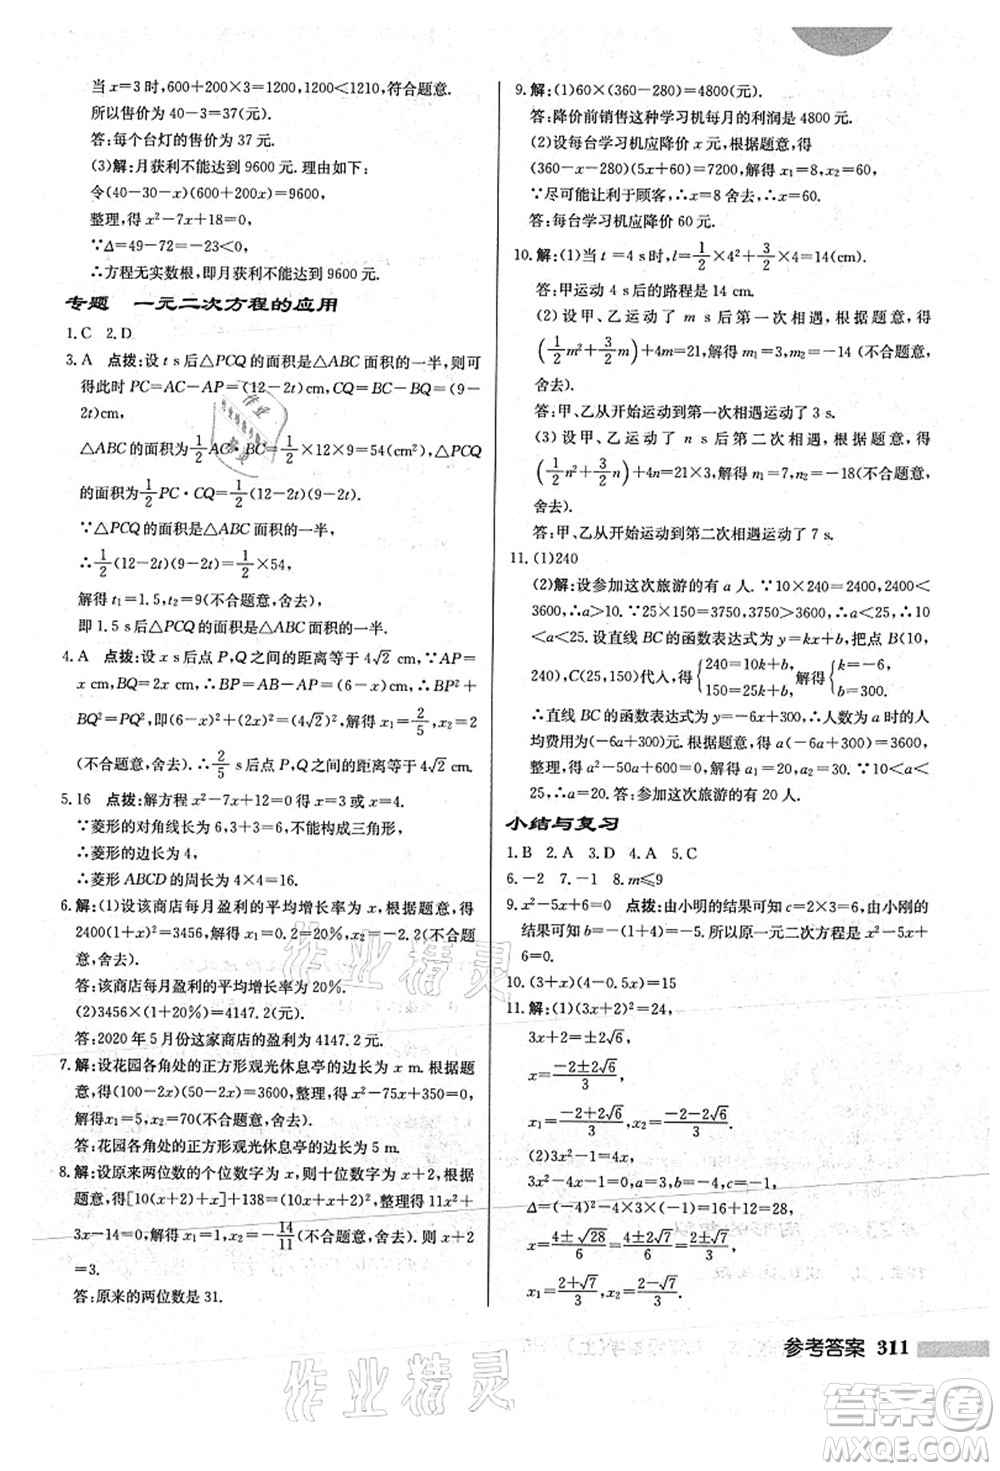 当 x=3 时,600+200×3=1200,1200<1210,符合题意.
所以售价为 40-3=37(元).
答:每个台灯的售价为 37 元.
(3)解:月获利不能达到 9600 元. 理由如下:
令(40-30-x)(600+200x)=9600,
整理,得 x²-7x+18=0.
∵Δ=49-72=-23<0.
∴方程无实数根,即月获利不能达到 9600 元.
专题 一元二次方程的应用
1.C 2.D
3.A 点拨:设 t s后△PCQ 的面积是△ABC 面积的一半,则可
得此时 PC=AC-AP=(12-2t)cm,CQ=BC-BQ=(9-
2t)cm,
△ABC 的面积为 1/2 AC·BC=1/2×12×9=54(cm²),△PCQ
的面积为 1/2 PC·CQ=1/2(12-2t)(9-2t)cm².
∵△PCQ 的面积是△ABC 面积的一半,
∴1/2(12-2t)(9-2t)=1/2×54,
解得 t₁=1.5,t₂=9(不合题意,舍去),
即 1.5 s后△PCQ 的面积是△ABC 面积的一半.
4.A 点拨:设 x s后点 P,Q 之间的距离等于 4√2 cm,∵AP=
x cm,BQ=2x cm,∴BP=AB-AP=(6-x)cm,∴BP²+
BQ²=PQ²,即(6-x)²+(2x)²=(4√2)²,解得 x₁=2/5,x₂=2
(不合题意,舍去).∴2/5 s后点 P,Q之间的距离等于 4√2 cm.
5.16 点拨:解方程 x²-7x+12=0 得 x=3 或 x=4.
∵菱形的对角线长为 6,3+3=6,不能构成三角形,
∴菱形的边长为 4.
∴菱形 ABCD 的周长为 4×4=16.
6.解:(1)设该商店每月盈利的平均增长率为 x,根据题意,得
2400(1+x)²=3456,解得 x₁=0.2,x₂=-2.2(不合题意,舍
去).
答:该商店每月盈利的平均增长率为 20%.
(2)3456×(1+20%)=4147.2(元).
答:2020 年 5 月份这家商店的盈利为 4147.2 元.
7.解:设花园各角处的正方形观光休息亭的边长为 x m.根据题
意,得(100-2x)(50-2x)=3600,整理,得 x²-75x+350=0,
解得x₁=5,x₂=70(不合题意,舍去).
答:花园各角处的正方形观光休息亭的边长为 5 m.
8.解:设原来两位数的个位数字为 x,则十位数字为 x+2,根据
题意,得[10(x+2)+x]+138=(x+2+x)²,整理得 11x²+
3x-14=0,解得 x₁=1,x₂=-14/11(不合题意,舍去).∴x+2
=3.
答:原来的两位数是 31.
9.解:(1)60×(360-280)=4800(元).
答:降价前销售这种学习机每月的利润是 4800 元.
(2)设每台学习机应降价 x 元,由题意,得
(360-x-280)(5x+60)=7200,解得 x₁=8,x₂=60.
∵尽可能让利于顾客,∴x=8 舍去,∴x=60.
答:每台学习机应降价 60 元.
10.解:(1)当 t=4 s时,l=1/2×4²+3/2×4=14(cm)
答:甲运动 4 s后的路程是 14 cm.
(2)设甲、乙运动了 m s 后第一次相遇,根据题意,得
(1/2m²+3/2m)+4m=21,解得 m₁=3,m₂=-14 (不合题意,
舍去).
答:甲、乙从开始运动到第一次相遇运动了 3 s.
(3)设甲、乙运动了 n s后第二次相遇,根据题意,得
(1/2n²+3/2n)+4n=21×3,解得 n₁=7,n₂=-18(不合题意,
舍去).
答:甲、乙从开始运动到第二次相遇运动了 7 s.
11.(1)240
(2)解:设参加这次旅游的有 a 人.∵10×240=2400,2400<
3600,∴a>10.∵25×150=3750,3750>3600,∴a<25,∴10
<a<25.∵设直线 BC 的函数表达式为 y=kx+b,把点 B(10,
240),C(25,150)代入,得{240=10k+b,150=25k+b,解得{k=-6,b=300.
∴直线 BC 的函数表达式为 y=-6x+300,∴人数为 a 时的人
均费用为(-6a+300)元.根据题意,得 a(-6a+300)=3600.
整理,得 a²-50a+600=0,解得 a₁=20,a₂=30.∵10<a<25,
∴a=20.答:参加这次旅游的有 20 人.
小结与复习
1.B 2.A 3.D 4.A 5.C
6.-2 7.-1 8.m≤9
9.x²-5x+6=0 点拨:由小明的结果可知 c=2×3=6,由小刚的
结果可知 b=-(1+4)=-5.所以原一元二次方程是 x²-5x+
6=0.
10.(3+x)(4-0.5x)=15
11.解:(1)(3x+2)²=24,
3x+2=±2√6,
x=(-2±2√6)/3,
x₁=(-2+2√6)/3,x₂=(-2-2√6)/3.
(2)3x²-1=4x,
3x²-4x-1=0,
Δ=(-4)²-4×3×(-1)=16+12=28,
x=(4±√28)/6=(4±2√7)/6=(2±√7)/3,
x₁=(2+√7)/3,x₂=(2-√7)/3.
参考答案 311
作业精灵
作业精灵
作业
精灵
答案圈
MXQE.COM